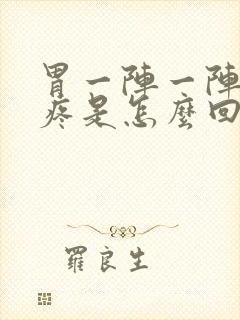 胃一陣一陣
疼是怎麼回
羅良生